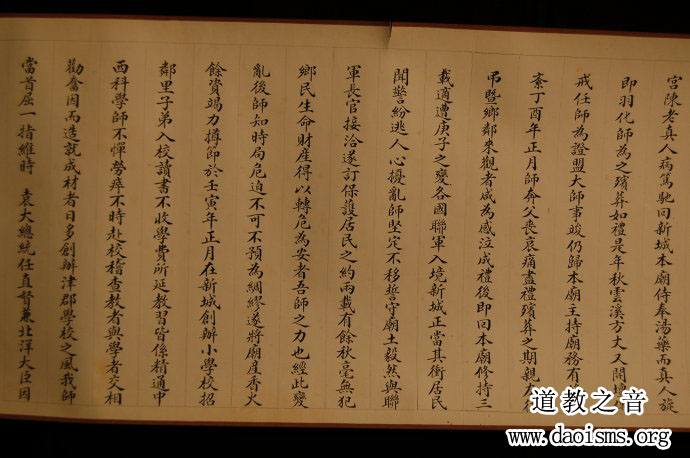 宫陳老真人病篤馳回新城本廟侍奉湯藥而真人旋
即羽化師為之殯葬如禮是年秋雲溪方丈又開
戒任師為證盟大師事竣仍歸本廟主持廟務有
紊丁酉年正月師弃父喪哀痛盡禮殯葬之期親友
弔暨鄉鄰來觀者咸為感泣成禮後即回本廟修持三
載適遭庚子之變各國聯軍入境新城正當其衝居民
聞警紛逃人心擾亂師堅定不移誓守廟土毅然與聯
軍長官接洽遂訂保護居民之約兩載有餘秋毫無犯
鄉民生命財產得以轉危為安者吾師之力也經此變
亂後師知時局危迫不可不預為綢繆遂將廟產香火
餘資竭力撙節於壬寅年正月在新城創辦小學校招
鄰里子弟入校讀書不收學費所延教習皆係精通中
西科學師不憚勞瘁不時赴校稽查教者與學者交相
勸奮因而造就成材者日多創辦津郡學校之風我師
當首屈一指維時 袁大總統任直督兼北洋大臣因
道教之音
www.daoisms.org